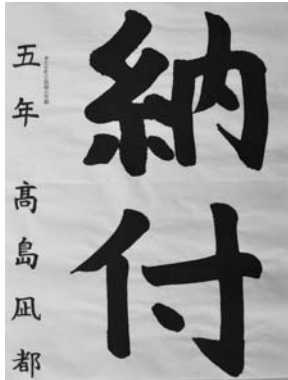 納付
五年 髙島凪都